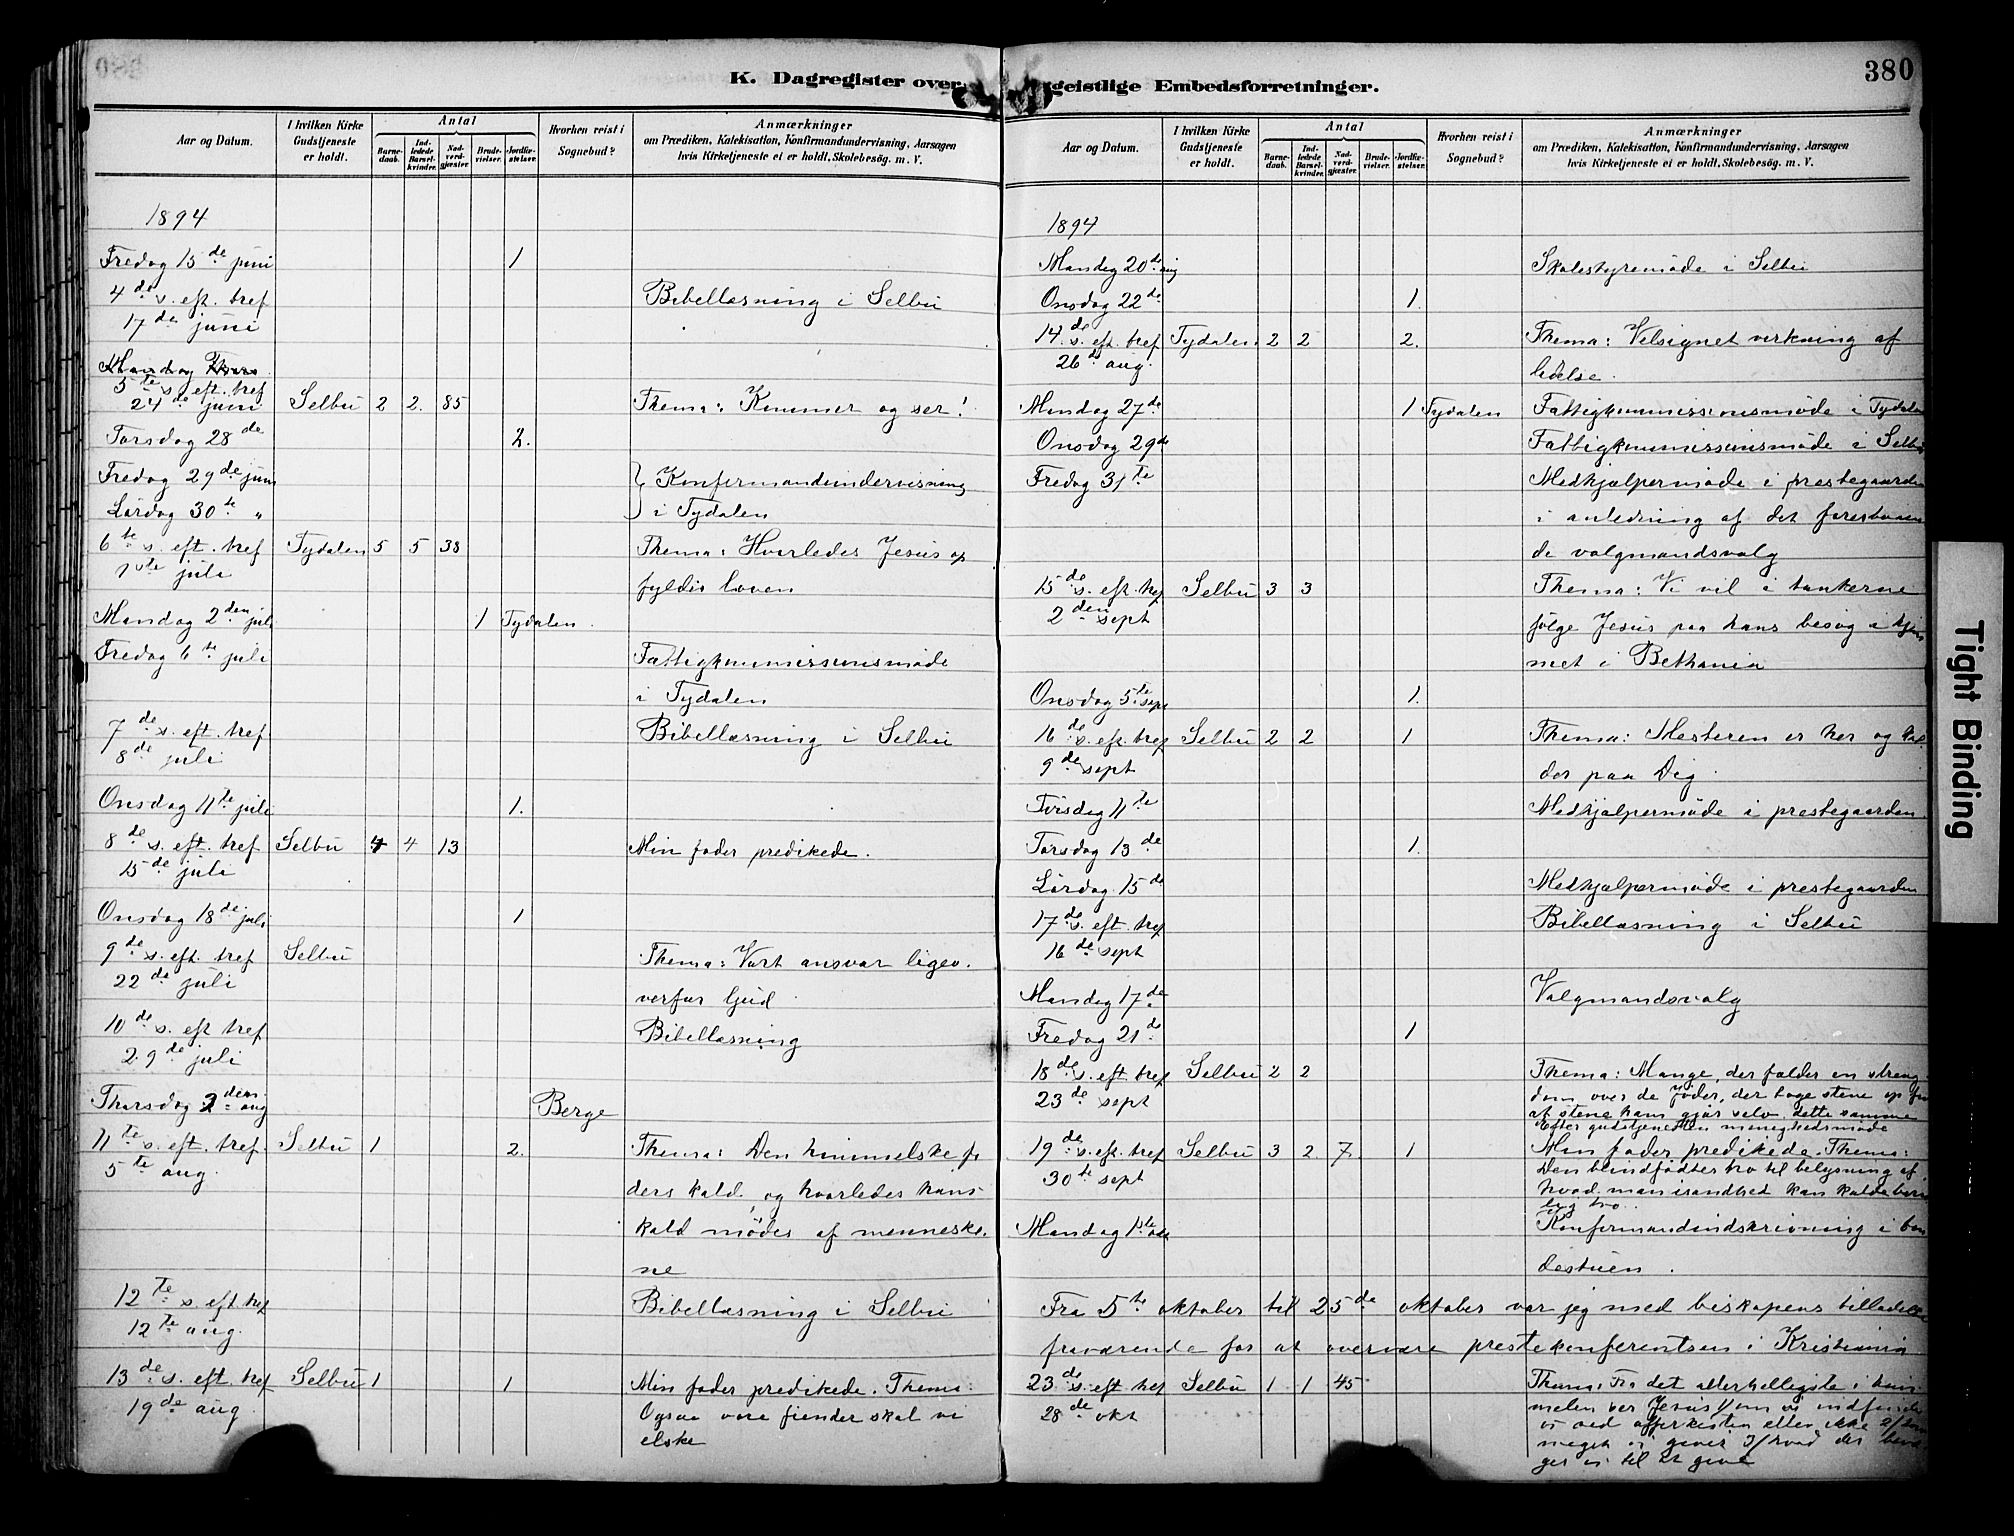 380
K. Dagregister over geistlige Embedsforretninger.
Aar og Datum.
I hvilken Kirke Gudstjeneste er holdt.
Antal
Barnedaab.
Indledede Barselkvinder.
Nadverdgjæster.
Brudevielser.
Jordfæstelser.
Hvorhen reist i Sognebud?
Anmærkninger
om Prædiken, Katekisation, Konfirmandundervisning, Aarsagen
hvis Kirketjeneste ei er holdt, Skolebesøg. m. V.
1894
Fredag 15de juni 1
4de s. eft. tref Bibellæsning i Selbu
17de juni
Mandag
5te s. eft. tref
24de juni Selbu 2 2. 85 Thema: Kommer og ser!
Torsdag 28de 2.
Fredag 29de juni Konfirmandundervisning
Lördag 30te " i Tydalen
6te s. eft. tref Tydalen 5 5 38 Thema: Hvorledes Jesus op
1ste juli fyldis loven
Mandag 2den juli 1 Tydalen.
Fredag 6te juli Fattigkommissionsmöde
i Tydalen
7de s. eft. tref Bibellæsning i Selbu
8de juli
Onsdag 11te juli 1.
8de s. eft. tref Selbu 4 4 13 Min fader predikede.
15de juli
Onsdag 18de juli 1
9de s. eft. tref Selbu Thema: Vort ansvar ligeo.
22de juli verfor Gud
10de s. eft tref Bibellæsning
29de juli
Thorsdag 2den aug Berge
11te s. eft. tref. Selbu 1 2. Thema: Den himmelske fa
5te aug. ders kald, og hvorledes hans
kald mödes af menneske.
ne
12te s. eft tref Bibellæsning i Selbu
12te aug.
13de s. eft tref Selbu 1 1 Min fader predikede. Thema:
19de aug Ogsaa vore fiender skal vi
elske
Aar og Datum.
I hvilken Kirke Gudstjeneste er holdt.
Antal
Barnedaab.
Indledede Barselkvinder.
Nadverdgjæster.
Brudevielser.
Jordfæstelser.
Hvorhen reist i Sognebud?
Anmærkninger
om Prædiken, Katekisation, Konfirmandundervisning, Aarsagen
hvis Kirketjeneste ei er holdt, Skolebesøg. m. V.
1894
Mandag 20de aug Skolestyremöde i Selbu
Onsdag 22de 1.
14de s. eft. tref Tydalen. 2 2 2. Thema: Velsignet virkning af
26de aug. lidelse.
Mandag 27de 1 Tydalen Fattigkommissionsmöde i Tydalen
Onsdag 29de Fattigkommissionsmöde i Selbu
Fredag 31te Medhjælpermöde i prestegaarden
i anledning af det forestaaen
de valgmandsvalg
15de s. eft. tref Selbu 3 3 Thema: Vi vil i tankerne
2den sept fölge Jesus paa hans besög i hjem
met i Bethania
Onsdag 5te sept 1.
16de s. eft. tref Selbu 2 2 1 Thema: Mesteren er her og kal
9de sept der paa Dig.
Tirsdag 11te Medhjælpermöde i prestegaarden.
Torsdag 13de 1.
Lördag 15de Medhjælpermöde i prestegaarden
17de s. eft. tref Bibellæsning i Selbu
16de sept
Mandag 17de Valgmandsvalg
Fredag 21de 1
18de s. eft. tref Selbu 2 2 Thema: Mange, der fælder en streng
23de sept dom over de Jöder, der toge stene op for
at stene ham gjör selv dette samme
Efter gudstjenesten menighedsmöde
19de s. eft. tref Selbu 3 2. 7. 1 Min fader predikede. Thema:
30te sept Den blindfödtes tro til belysning af
hvad man i sandhed kan kalde
tro.
Mandag 1ste okt Konfirmandindskrivning i bon
destuen.
Fra 5te oktober til 25de oktober var jeg med biskopens tilladelse
fraværende for at overvære prestekonferentsen i Kristiania
23de s. eft tref Selbu 1 1 45 Thema: Fra det allerhelligste i him
28de okt melen ser Jesus 1/om vi indfinder
os ved offerkisten eller ikke 2/hvor
meget vi giver 3/hvad der bevæ
ger os til at give
Tight Binding